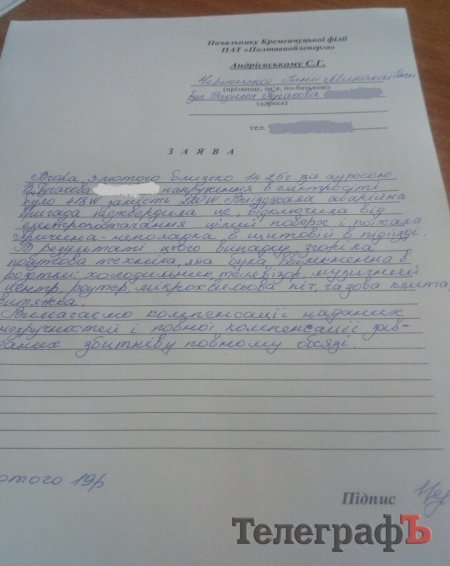 Начальнику Кременчуцької філії
ПАТ «Полтаваобленерго»
Андрієвському С.Г.
Миколаївни
(прізвище, ім'я, по-батькові)
вул. Вадима Пугачова
(адреса)
тел.
ЗАЯВА
Вчора 3 лютого близько 14.25г за адресою
В.Пугачова напруження в електросеті
було 418W замість 220W. Приїзджала аварійна
бригада підтвердила це, відключила від
електропостачання цілий поверх і поїхала
Причина - неполадка в щитовій в під'їзді.
В результаті цього випадку згоріла
побутова техніка, яка була ввімкненна в
розетки: холодильник, телевізор, музичний
центр, роутер, микрохвильова піч, газова плита,
витяжка.
Вимагаємо компенсації наданих
незручностей і повної компенсації зав-
даних збитків у повному обсязі.
лютого 19р
Підпис
ТелеграфЪ